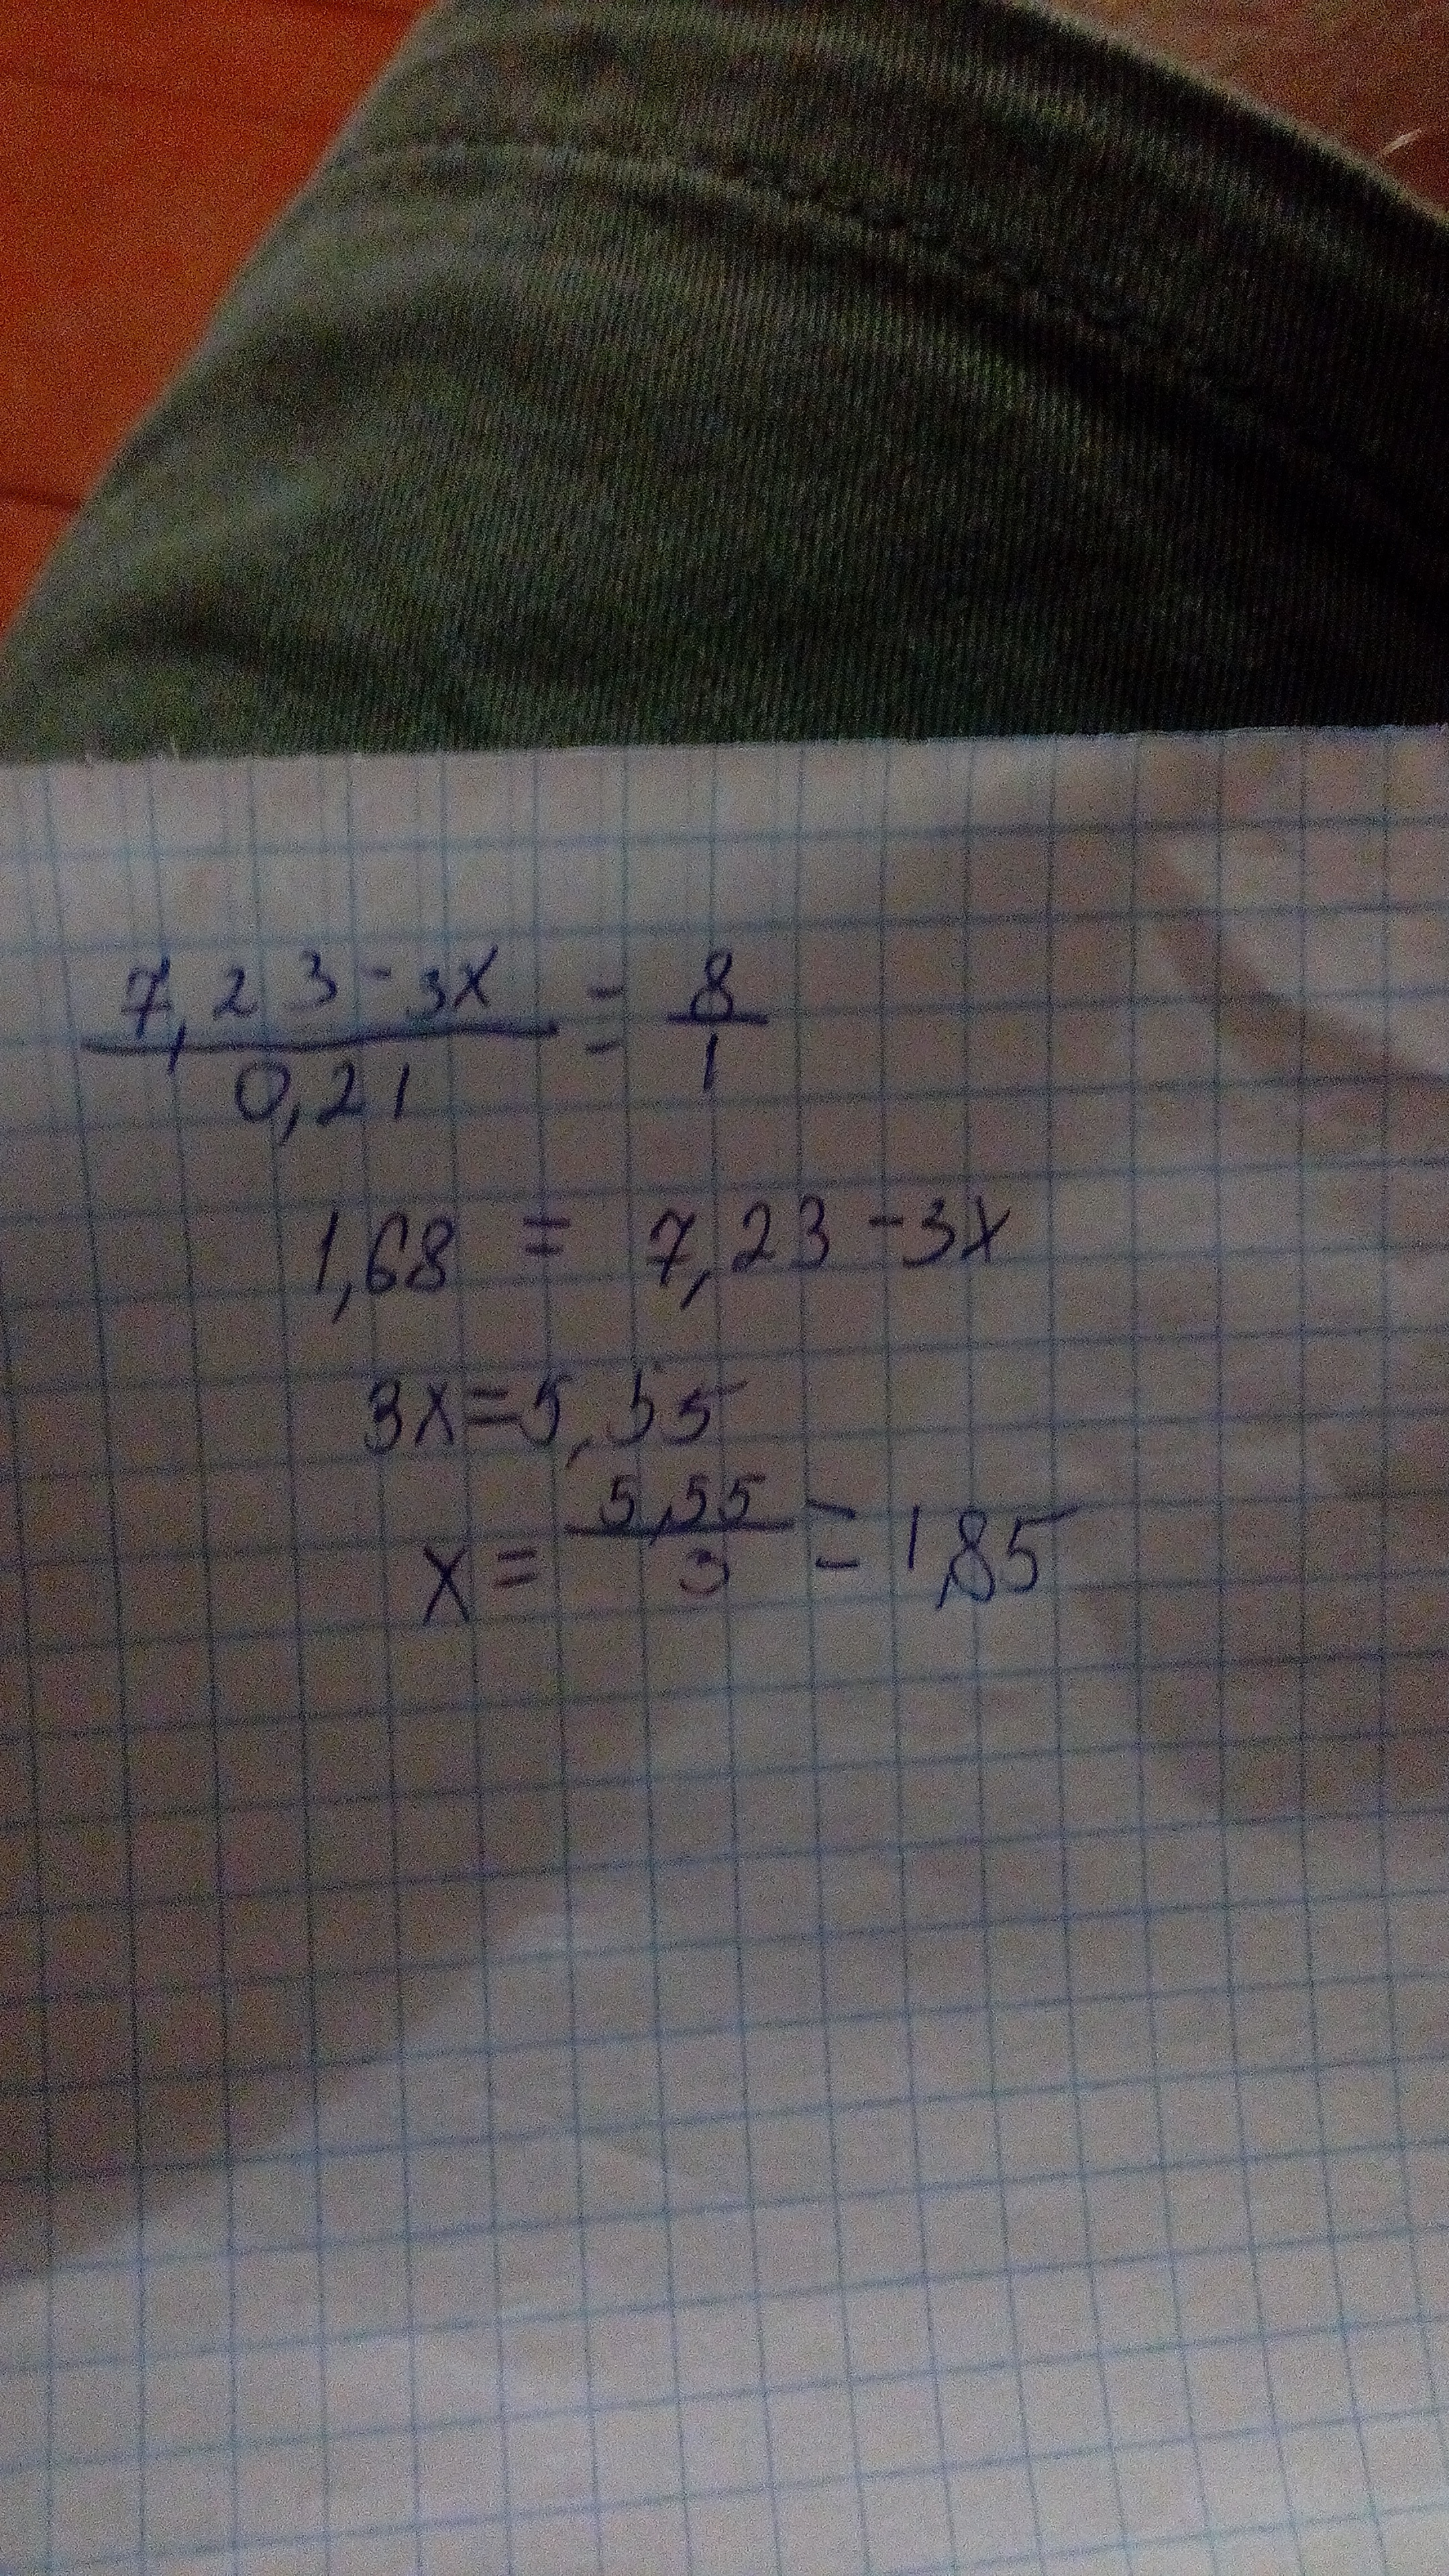 7,23-3x/0,21 = 8/1
1,68 = 7,23-3x
3x=5,55
x = 5,55/3 = 1,85